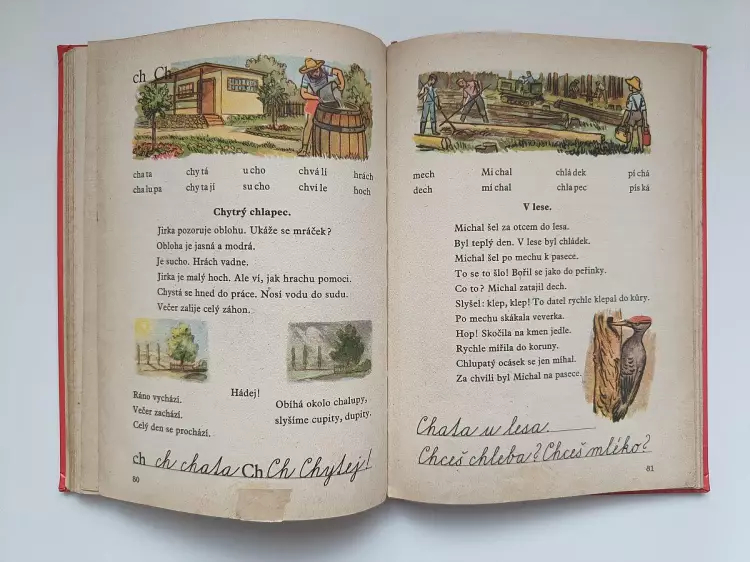 ch Ch
chata chytá ucho chválí hrách
chalupa chytají sucho chvíle hoch
Chytrý chlapec.
Jirka pozoruje oblohu. Ukáže se mráček?
Obloha je jasná a modrá.
Je sucho. Hrách vadne.
Jirka je malý hoch. Ale ví, jak hrachu pomoci.
Chystá se hned do práce. Nosí vodu do sudu.
Večer zalije celý záhon.
Hádej!
Ráno vychází.
Večer zachází.
Celý den se prochází.
Obíhá okolo chalupy,
slyšíme cupity, dupity.
ch ch chata Ch Ch Chytej!
80
mech Michal chládek píchá
dech míchal chlapec píská
V lese.
Michal šel za otcem do lesa.
Byl teplý den. V lese byl chládek.
Michal šel po mechu k pasece.
To se to šlo! Bořil se jako do peřinky.
Co to? Michal zatajil dech.
Slyšel: klep, klep! To datel rychle klepal do kůry.
Po mechu skákala veverka.
Hop! Skočila na kmen jedle.
Rychle mířila do koruny.
Chlupatý ocásek se jen míhal.
Za chvíli byl Michal na pasece.
Chata u lesa.
Chceš chleba? Chceš mléko?
81